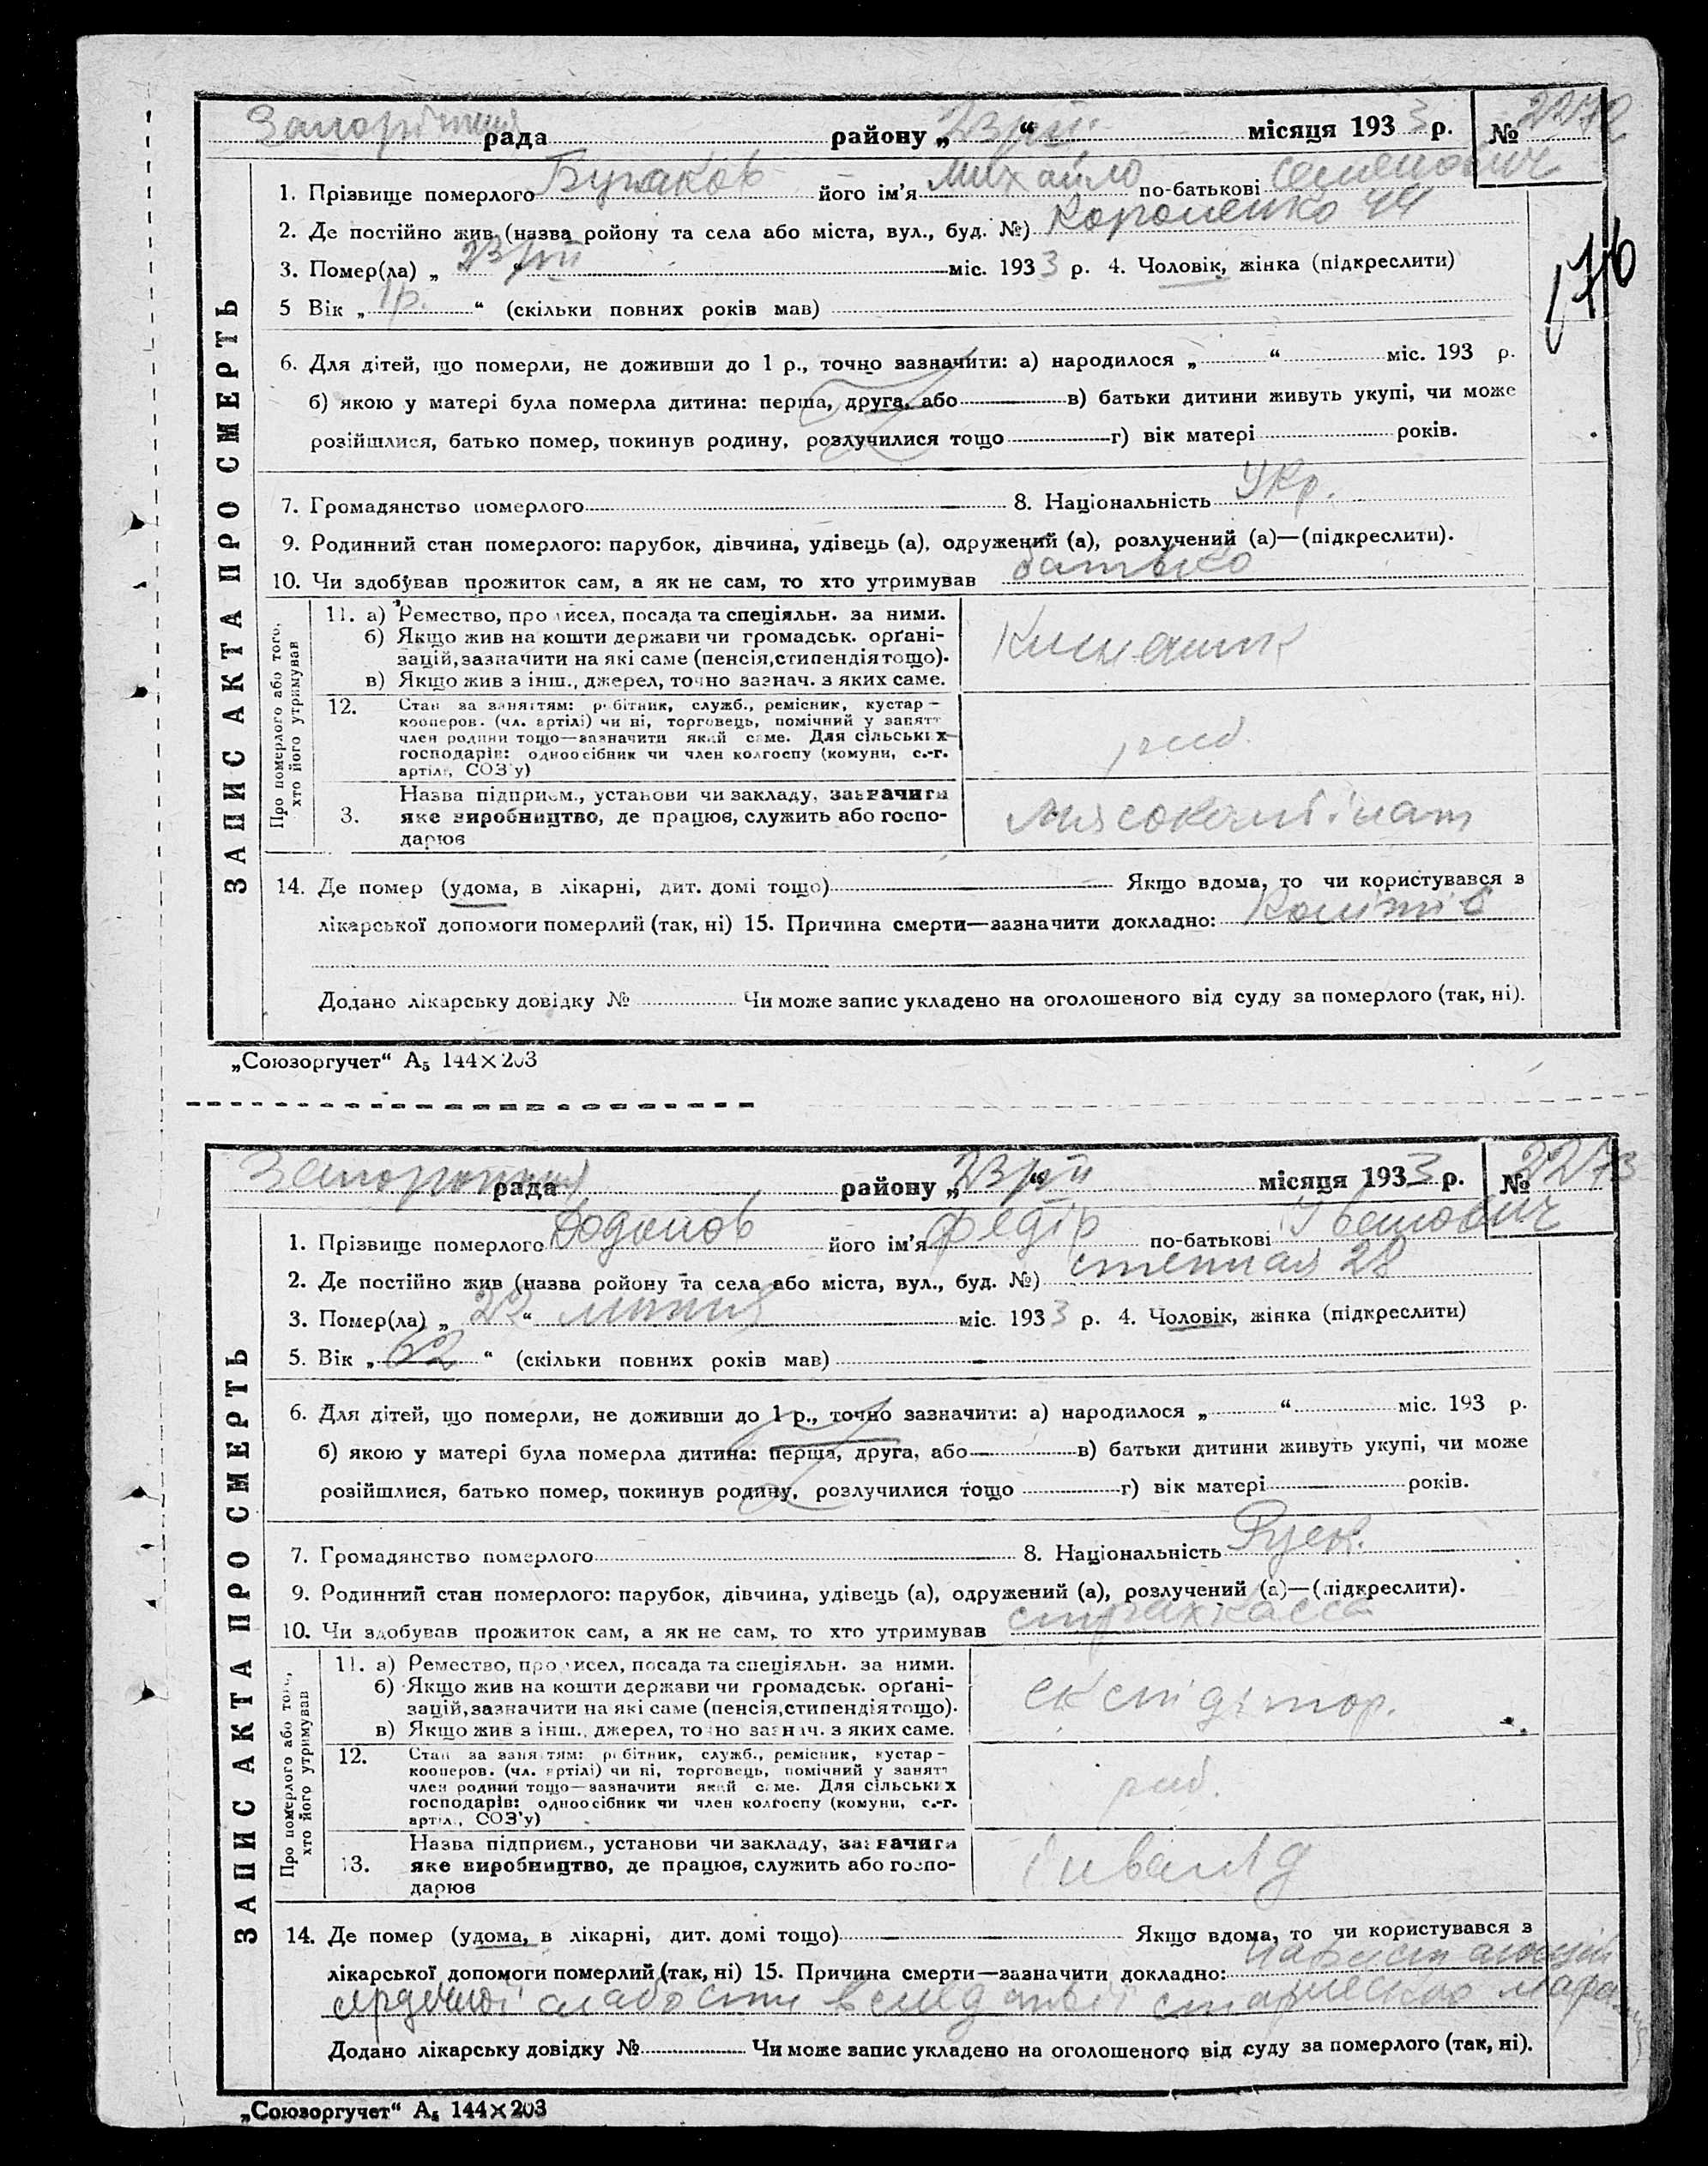 рада района „23/VII“ місяця 1933 р. № 2272
1. Прізвище померлого Бураков його ім'я Михайло по-батькові Семенович
2. Де постійно жив (назва ройону та села або міста, вул., буд. №) Короленко 44
3. Помер(ла) „ 23/VII міс. 1933 р. 4. Чоловік, жінка (підкреслити)
176
5 Вік „ 1 р. “ (скільки повних років мав)
ЗАПИС АКТА ПРО СМЕРТЬ
6. Для дітей, що померли, не доживши до 1 р., точно зазначити: а) народилося „ “ міс. 193 р.
б) якою у матері була померла дитина: перша, друга, або в) батьки дитини живуть укупі, чи може
розійшлися, батько помер, покинув родину, розлучилися тощо г) вік матері років.
7. Громадянство померлого 8. Національність Укр.
9. Родинний стан померлого: парубок, дівчина, удівець (а), одружений (а), розлучений (а)—(підкреслити).
10. Чи здобував прожиток сам, а як не сам, то хто утримував батько
Про померлого або того, хто його утримував
11. а) Ремество, промисел, посада та спеціяльн. за ними.
б) Якщо жив на кошти держави чи громадськ. орґані-
зацій, зазначити на які саме (пенсія, стипендія тощо).
в) Якщо жив з інш., джерел, точно зазнач. з яких саме.
12. Стан за заняттям: робітник, служб., ремісник, кустар –
кооперов. (чл. артілі) чи ні, торговець, помічний у занятт
член родини тощо—зазначити який саме. Для сільських
господарів: одноосібник чи член колгоспу (комуни, с.-г.
артілі, СОЗ'у)
роб.
3. Назва підприєм., установи чи закладу, зазначити
яке виробництво, де працює, служить або госпо-
дарює
Мясокомбінат
14. Де помер (удома, в лікарні, дит. домі тощо) Якщо вдома, то чи користувався з
лікарської допомоги померлий (так, ні) 15. Причина смерти—зазначити докладно: Колітів
Додано лікарську довідку № Чи може запис укладено на оголошеного від суду за померлого (так, ні).
„Союзоргучет“ А₅ 144×203
рада району „23/VII“ місяця 1933 р. № 2273
1. Прізвище померлого Додонов його ім'я Федір по-батькові Іванович
2. Де постійно жив (назва ройону та села або міста, вул., буд. №) Степная 28
3. Помер(ла) „ 22 “ липня міс. 1933 р. 4. Чоловік, жінка (підкреслити)
5. Вік „ 62 “ (скільки повних років мав)
ЗАПИС АКТА ПРО СМЕРТЬ
6. Для дітей, що померли, не доживши до 1 р., точно зазначити: а) народилося „ “ міс. 193 р.
б) якою у матері була померла дитина: перша, друга, або в) батьки дитини живуть укупі, чи може
розійшлися, батько помер, покинув родину, розлучилися тощо г) вік матері років.
7. Громадянство померлого 8. Національність Руск.
9. Родинний стан померлого: парубок, дівчина, удівець (а), одружений (а), розлучений (а)—(підкреслити).
10. Чи здобував прожиток сам, а як не сам, то хто утримував страхкасса
Про померлого або того, хто його утримував
11. а) Ремество, промисел, посада та спеціяльн. за ними.
б) Якщо жив на кошти держави чи громадськ. орґані-
зацій, зазначити на які саме (пенсія, стипендія тощо).
в) Якщо жив з інш., джерел, точно зазнач. з яких саме.
експідітор.
12. Стан за заняттям: робітник, служб., ремісник, кустар –
кооперов. (чл. артілі) чи ні, торговець, помічний у занятт
член родини тощо—зазначити який саме. Для сільських
господарів: одноосібник чи член колгоспу (комуни, с.-г.
артіл., СОЗ'у)
роб.
13. Назва підприєм., установи чи закладу, зазначити
яке виробництво, де працює, служить або госпо-
дарює
інвалід
14. Де помер (удома, в лікарні, дит. домі тощо) Якщо вдома, то чи користувався з
лікарської допомоги померлий (так, ні) 15. Причина смерти—зазначити докладно:
сердечної слабости
Додано лікарську довідку № Чи може запис укладено на оголошеного від суду за померлого (так, ні).
„Союзоргучет“ А₅ 144×203